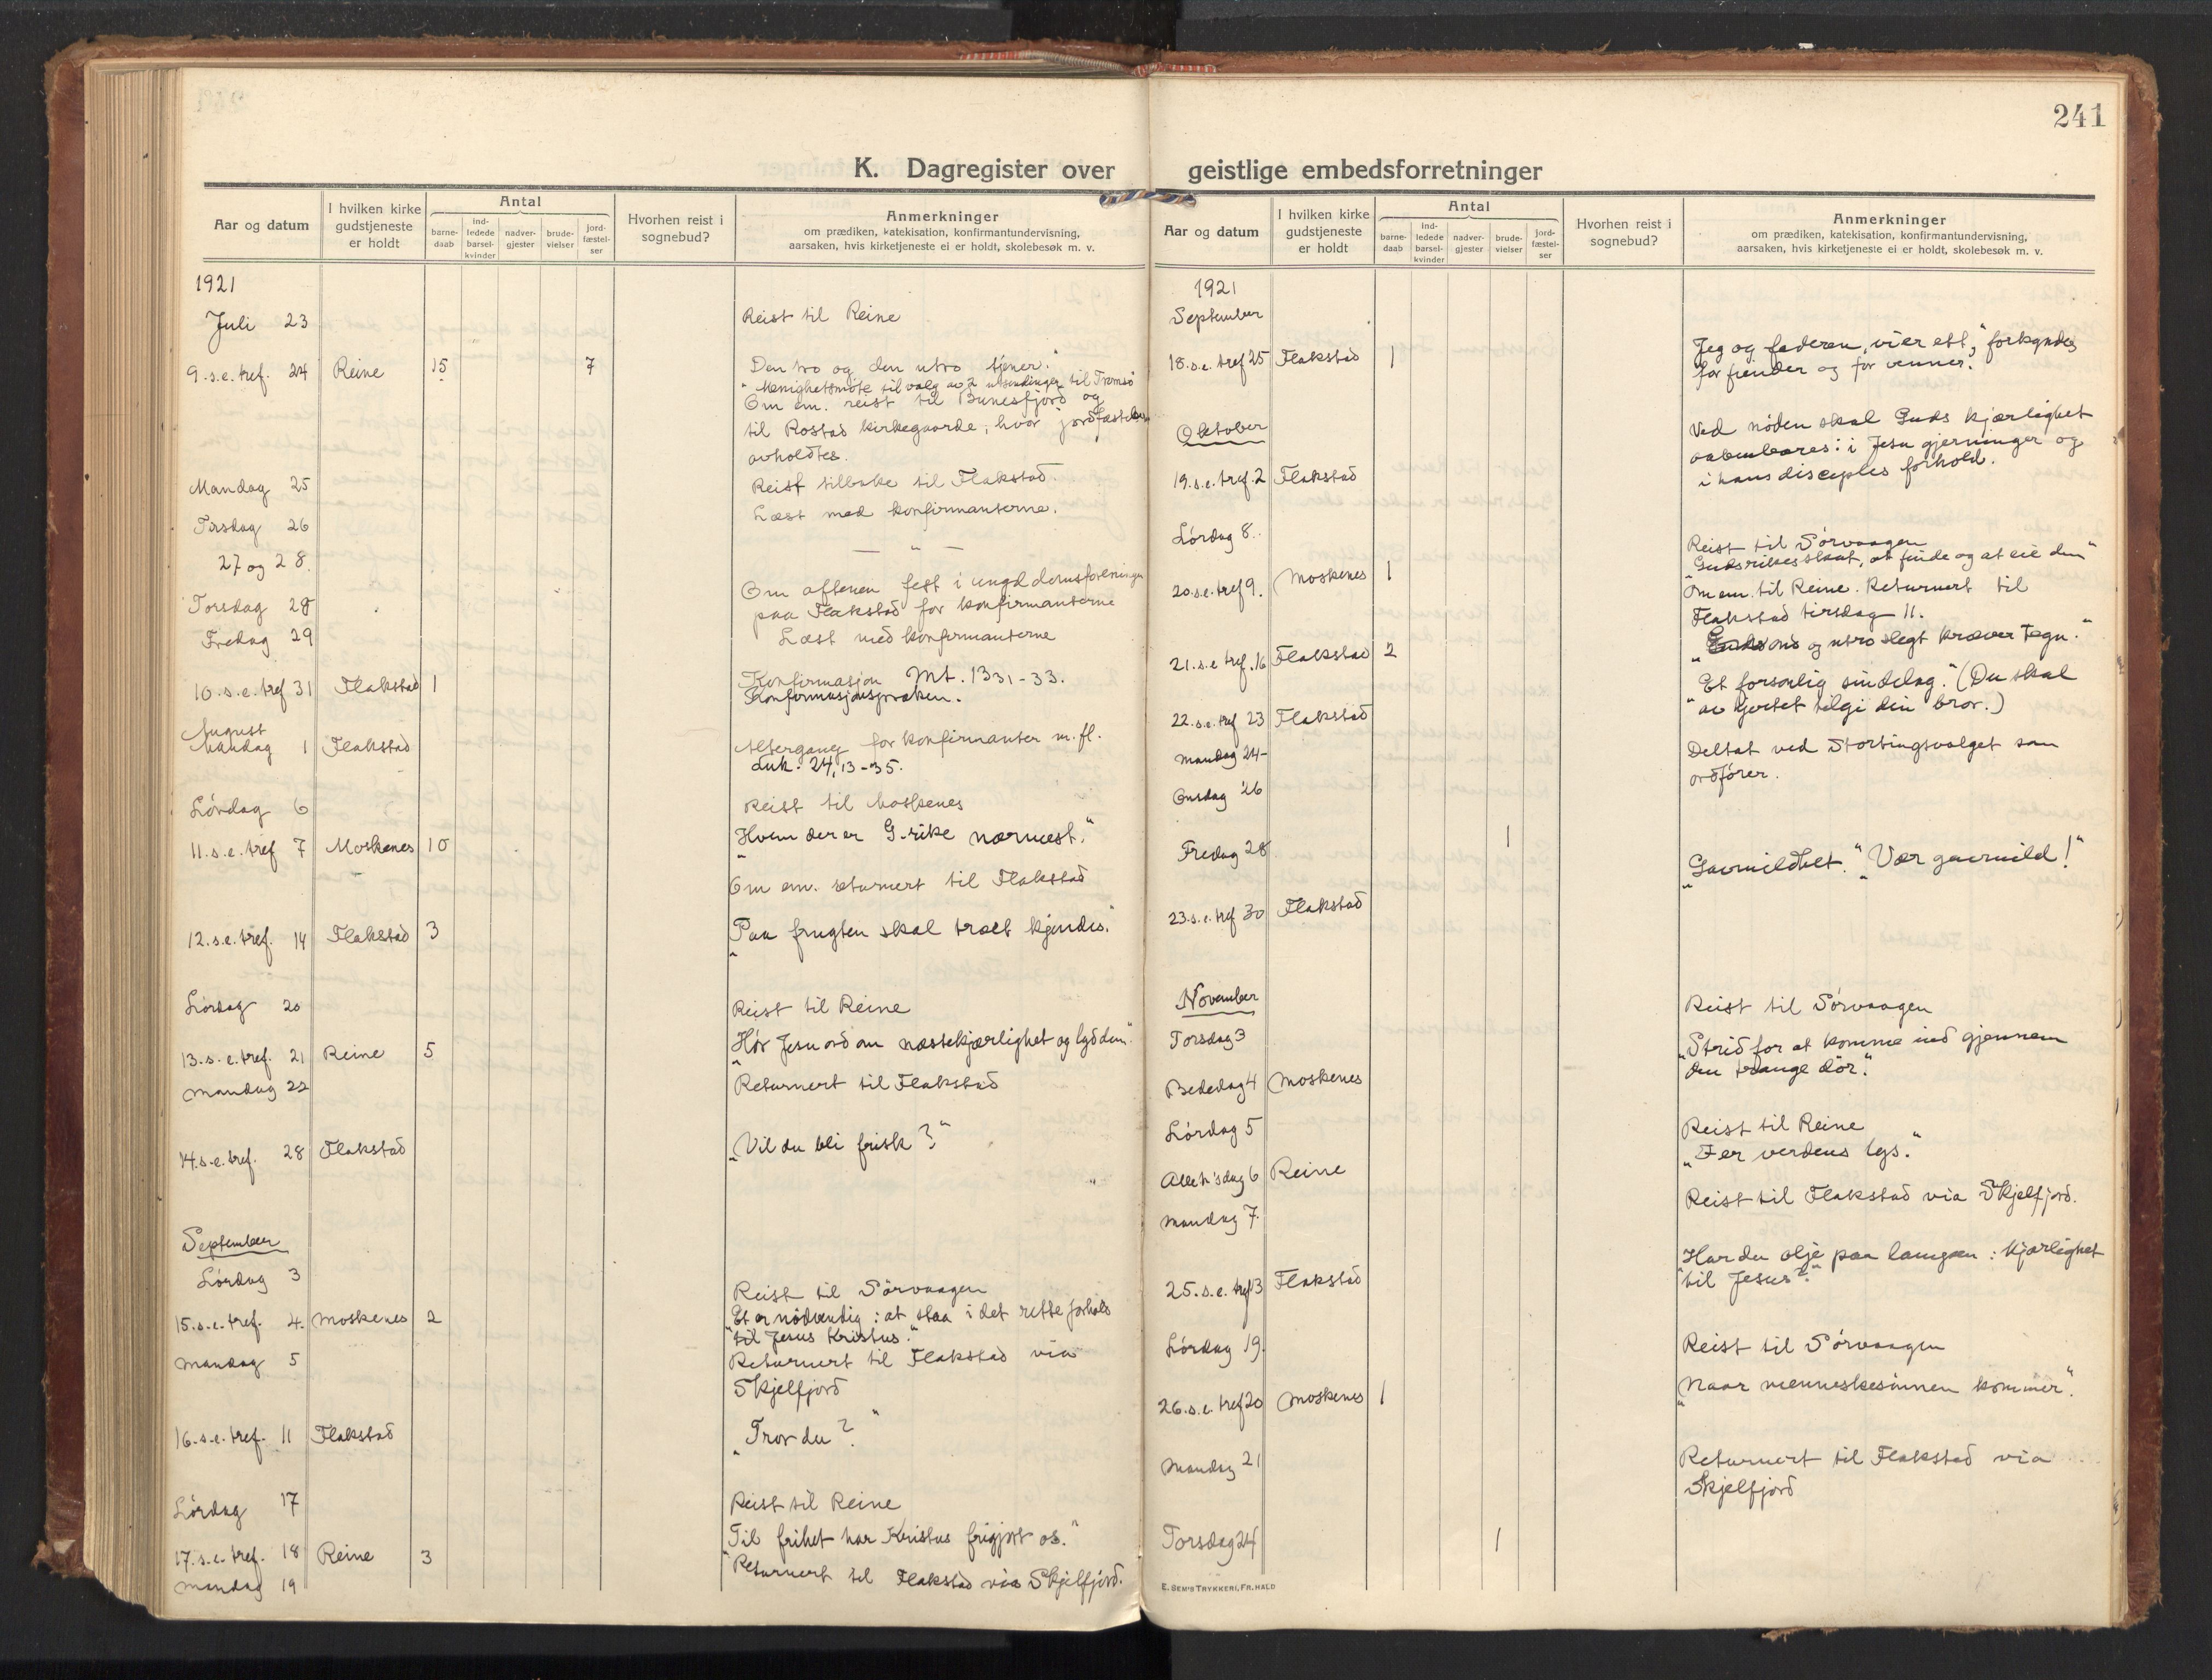 241
K. Dagregister over geistlige embedsforretninger
Aar og datum
I hvilken kirke gudstjeneste er holdt
Antal
barne-daab
ind-ledede barsel-kvinder
nadver-gjester
brude-vielser
jord-fæstel-ser
Hvorhen reist i sognebud?
Anmerkninger
om prædiken, katekisation, konfirmantundervisning,
aarsaken, hvis kirketjeneste ei er holdt, skolebesøk m. v.
1921
Juli 23 Reist til Reine
9.s.e.tref. 24 Reine 15 7 Den tro og den utro tjener."
" Menighetsmøte til valg av 2 utsendinger til Tromsø
Om em. reist til Bunesfjord og
til Rostad kirkegaarde, hvor jordfæstelser
avholdtes.
Mandag 25 Reist tilbake til Flakstad.
Tirsdag 26 Læst med konfirmanterne.
27 og 28. — " —
Torsdag 28 Om aftenen fest i ungdomsforeningen
paa Flakstad for konfirmanterne
Fredag 29 Læst med konfirmanterne
10.s.e.tref 31 Flakstad 1 Konfirmasjon Mt. 13 31-33.
Konfirmasjonspræken.
August
Mandag 1 Flakstad Altergang for konfirmanter m.fl.
Luk. 24,13-35.
Lördag 6 Reist til Moskenes
11.s.e.tref 7 Moskenes 10 „Hvem der er G. rike nærmest."
Om em. returnert til Flakstad
12.s.e.tref. 14 Flakstad 3 „Paa frugten skal træet kjendes."
Lördag 20 Reist til Reine
13.s.e.tref. 21 Reine 5 „Hör Jesu ord om næstekjærlighet og lyd dem."
Mandag 22 Returnert til Flakstad
14.s.e.tref. 28 Flakstad „Vil du bli frisk?"
September
Lördag 3 Reist til Sörvaagen
15.s.e.tref. 4. Moskenes 2 „Et er nödvendig: at staa i det rette forhold
til Jesus Kristus."
Mandag 5 Returnert til Flakstad via
Skjelfjord
16.s.e.tref. 11 Flakstad „Tror du?"
Lördag 17 Reist til Reine
17.s.e.tref. 18 Reine 3 „Til frihet har Kristus frigjort os."
Mandag 19 Returnert til Flakstad via Skjelfjord.
Aar og datum
I hvilken kirke gudstjeneste er holdt
Antal
barne-daab
ind-ledede barsel-kvinder
nadver-gjester
brude-vielser
jord-fæstel-ser
Hvorhen reist i sognebud?
Anmerkninger
om prædiken, katekisation, konfirmantundervisning,
aarsaken, hvis kirketjeneste ei er holdt, skolebesøk m. v.
1921
September
18.s.e.tref 25 Flakstad 1 Jeg og faderen, vi er ett," forkyndes
for fiender og for venner.
Oktober
19.s.e.tref. 2 Flakstad Ved nöden skal Guds kjærlighet
aabenbares: i Jesu gjerninger og
i hans disciples forhold.
Lördag 8. Reist til Sörvaagen
20.s.e.tref 9. Moskenes 1 „Gudsrikes skat, at finde og at eie den"
Om em. til Reine. Returnert til
Flakstad tirsdag 11.
21.s.e.tref. 16 Flakstad 2 „ ond og utro slegt kræver tegn."
22.s.e.tref 23 Flakstad „Et forsonlig sindelag." (Du skal
av hjertet tilgi din bror.)
Mandag 24- Deltat ved Stortingsvalget som
Onsdag 26 ordförer.
Fredag 28 1
23.s.e.tref 30 Flakstad „Gavmildhet." „Vær gavmild!"
November
Torsdag 3 Reist til Sörvaagen
Bededag 4 Moskenes „Strid for at komme ind gjennem
den trange dör."
Lördag 5 Reist til Reine
Alleh'sdag 6 Reine „I er verdens lys."
Mandag 7. Reist til Flakstad via Skjelfjord.
25.s.e.tref 13 Flakstad „Har du olje paa lampen: kjærlighet
til Jesus?"
Lördag 19. Reist til Sörvaagen
26.s.e.tref 20 Moskenes 1 „Naar menneskesönnen kommer."
Mandag 21 Returnert til Flakstad via
Skjelfjord
Torsdag 24 1
E. SEM'S TRYKKERI, FR.HALD